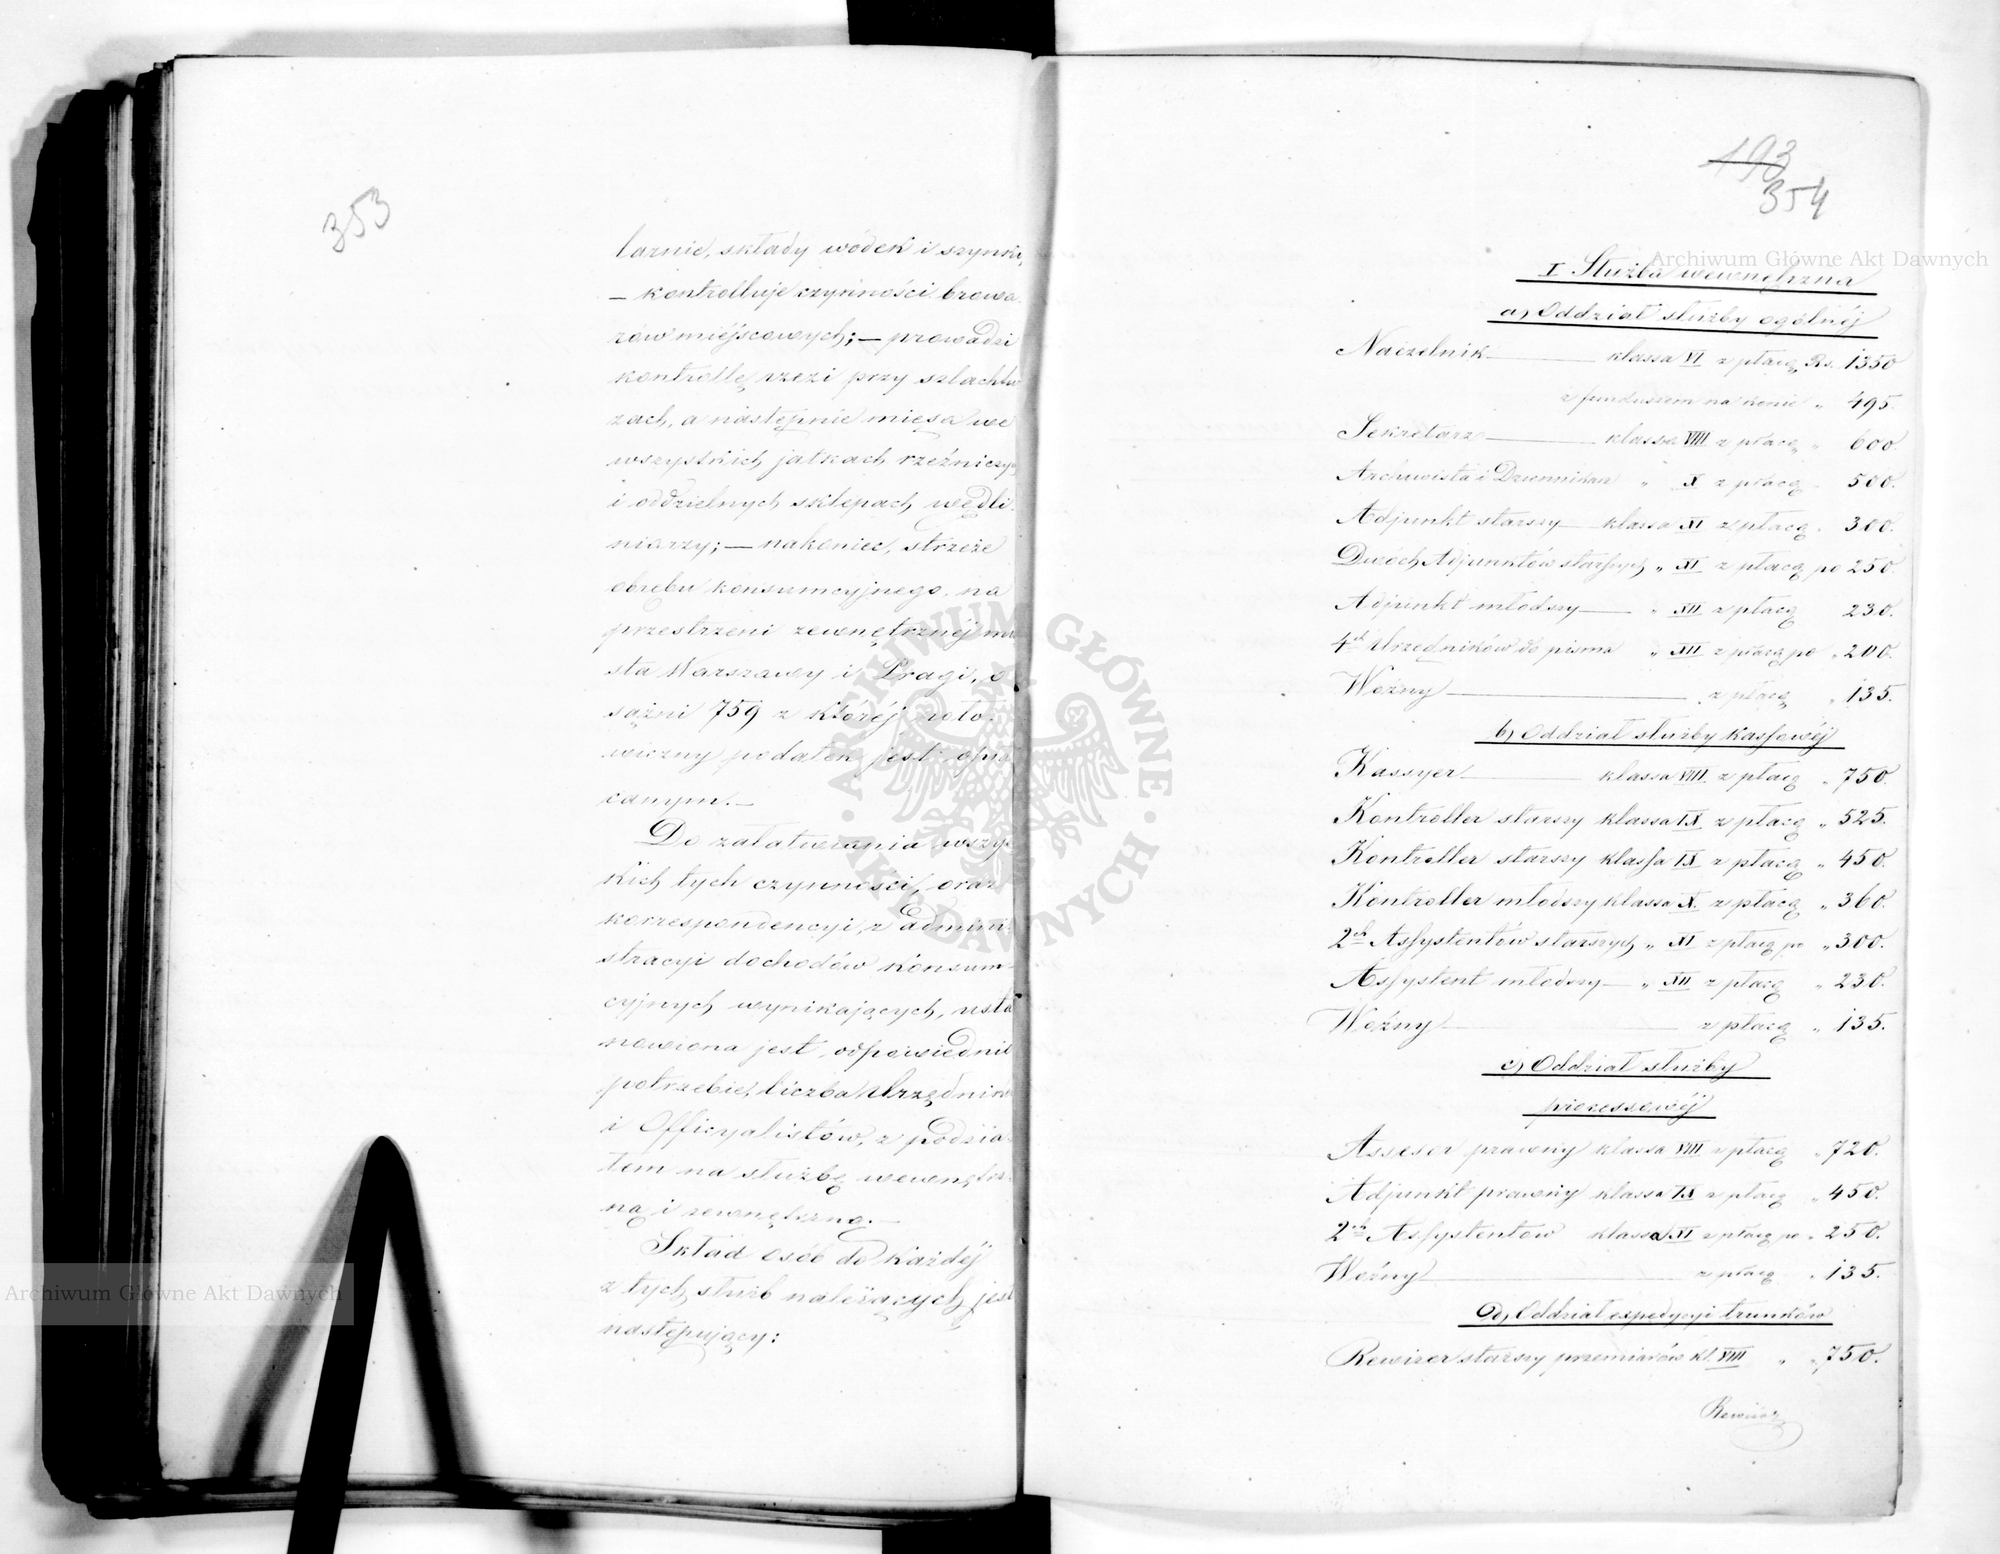 353
larnie, składy wódek i szynki,
— kontrolluje czynności browa-
rów miéjscowych; — prowadzi
kontrollę rzezi przy szlachtu-
zach, a następnie mięsa we
wszystkich jatkach rzeźniczych
i oddzielnych sklepach wędli-
niarzy; — nakoniec, strzeże
obrębu konsumcyjnego, na
przestrzeni zewnętrznéj mia-
sta Warszawy i Pragi, o
sążni 759 z któréj
podatek jest opła-
canym. —
Do załatwiania wszyst-
kich tych czynności, oraz
korrespondencyi z admini-
stracyi dochodów konsum-
cyjnych wynikających, usta-
nowiona jest odpowiednie
potrzebie, liczba Urzędników
i Officyalistów, z podzia-
łem na służbę wewnętrz-
ną i zewnętrzną. —
Skład osób do każdéj
z tych służb należących, jest
następujący:
193
354
I Służba wewnętrzna
a) Oddział służby ogólnéj
Naczelnik — klassa VI z płacą Rs. 1350
z funduszem na konie „ 495.
Sekretarz — klassa VIII z płacą „ 600.
Archiwista i Dziennikarz „ X z płacą „ 500.
Adjunkt starszy — klassa XI z płacą „ 300.
Dwóch Adjunktów starszych „ XI z płacą po 250.
Adjunkt młodszy — „ XII z płacą 230.
4ch Urzędników do pisma „ XII z płacą po „ 200.
Woźny — z płacą „ 135.
b) Oddział służby kassowéj
Kassyer — klassa VIII z płacą „ 750.
Kontroller starszy klassa IX z płacą „ 525.
Kontroller starszy klassa IX z płacą „ 450.
Kontroller młodszy klassa X. z płacą „ 360.
2ch Assystentów starszych „ XI z płacą po „ 300.
Assystent młodszy — „ XII z płacą „ 230.
Woźny — z płacą „ 135.
c) Oddział służby
processowéj
Assesor prawny klassa VIII z płacą „ 720.
Adjunkt prawny klassa IX z płacą „ 450.
2ch Assystentów klassa XI z płacą po „ 250.
Woźny — z płacą „ 135.
d) Oddział expedycyi trunków
Rewizor starszy przemiarów kl. VIII „ „ 750.
Rewizor
Archiwum Główne Akt Dawnych
Archiwum Główne Akt Dawnych
ARCHIWUM GŁÓWNE AKT DAWNYCH